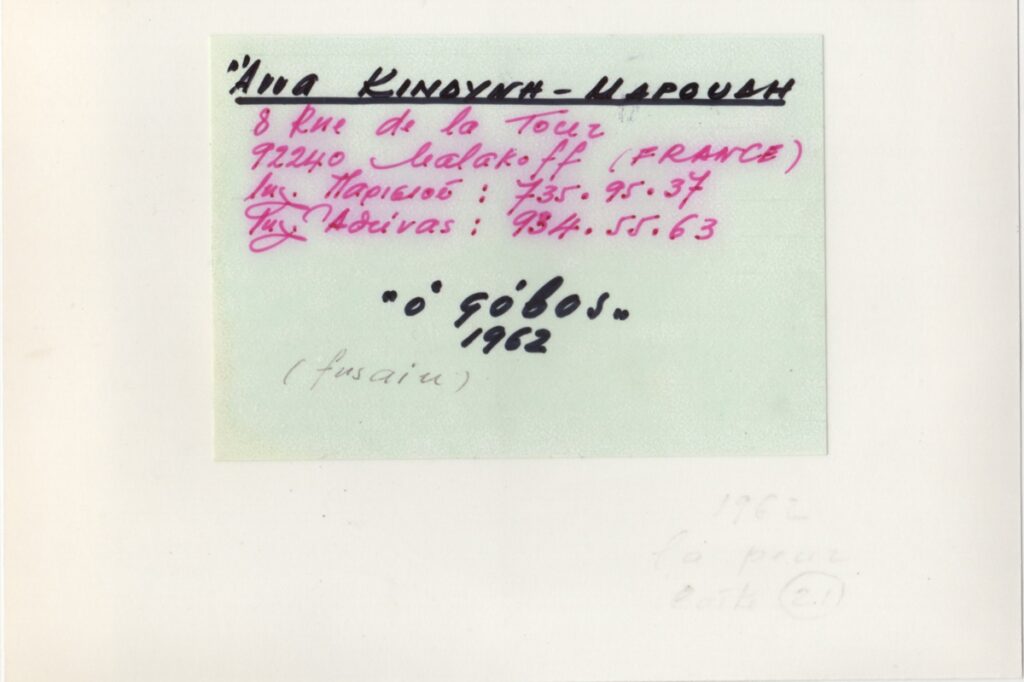 Ἄννα ΚΙΝΔΥΝΗ - ΜΑΡΟΥΔΗ
8 Rue de la Tour
92240 Malakoff (FRANCE)
Τηλ. Παρισιοῦ : 735.95.37
Τηλ. Ἀθήνας : 934.55.63
"ὁ φόβος"
1962
(fusain)
1962
la peur
boîte (2.1)